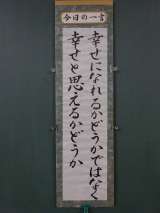 今日の一言
幸せになれるかどうかではなく
幸せと思えるかどうか